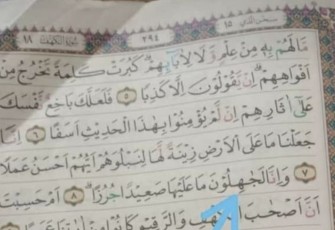 سورة الكهف ١٨ ٢٩٤ ١٥
مَّا لَهُم بِهِۦ مِنْ عِلْمٍ وَلَا لِأَبَآئِهِمْ كَبُرَتْ كَلِمَةً تَخْرُجُ مِنْ
أَفْوَاهِهِمْ إِن يَقُولُونَ إِلَّا كَذِبًا ٥ فَلَعَلَّكَ بَاخِعٌ نَّفْسَكَ
عَلَىٰٓ ءَاثَارِهِمْ إِن لَّمْ يُؤْمِنُوا۟ بِهَٰذَا ٱلْحَدِيثِ أَسَفًا ٦ إِنَّا
جَعَلْنَا مَا عَلَى ٱلْأَرْضِ زِينَةً لَّهَا لِنَبْلُوَهُمْ أَيُّهُمْ أَحْسَنُ عَمَلًا
٧ وَإِنَّا لَجَٰهِلُونَ مَا عَلَيْهَا صَعِيدًا جُرُزًا ٨ أَمْ حَسِبْتَ
أَنَّ أَصْحَٰبَ ٱلْكَهْفِ وَٱلرَّقِيمِ كَانُوا۟